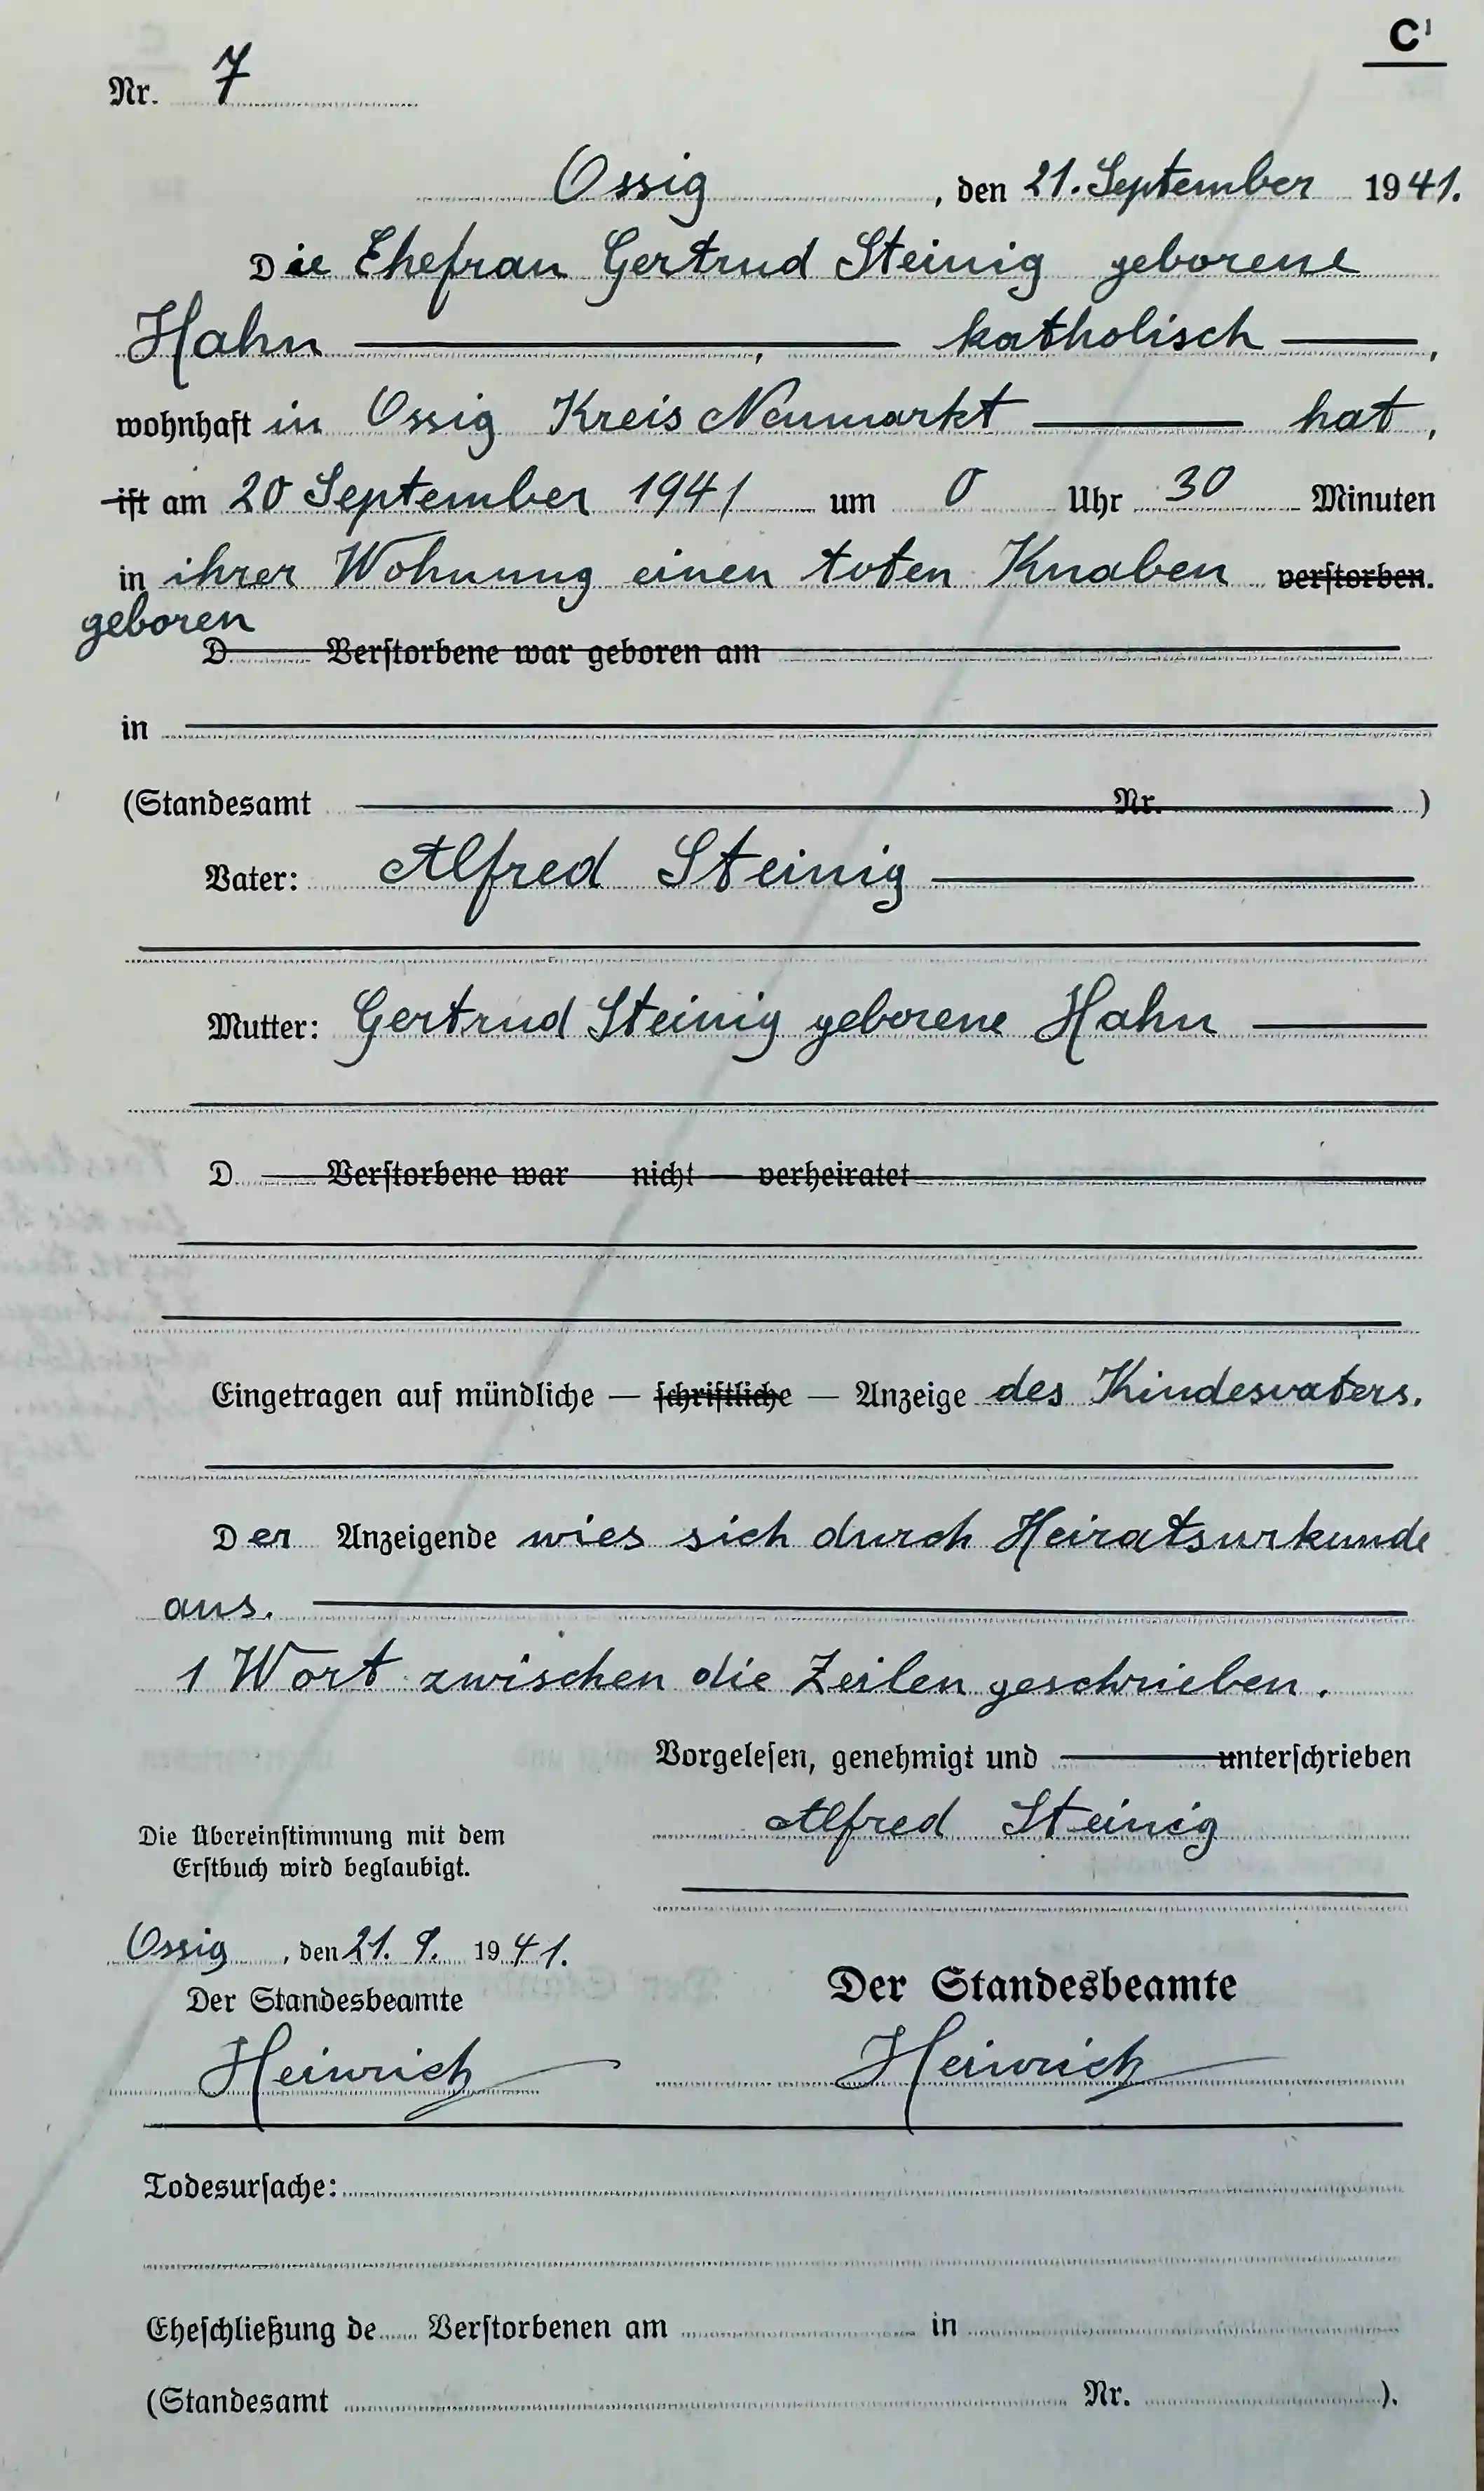 C¹
Nr. 7
Ossig, den 21. September 1941.
Die Ehefrau Gertrud Steinig geborene
Hahn, katholisch,
wohnhaft in Ossig Kreis Neumarkt hat,
ist am 20 September 1941 um 0 Uhr 30 Minuten
in ihrer Wohnung einen toten Knaben verstorben.
geboren
D Verstorbene war geboren am
in
(Standesamt Nr. )
Vater: Alfred Steinig
Mutter: Gertrud Steinig geborene Hahn
D Verstorbene war nicht verheiratet
Eingetragen auf mündliche — schriftliche — Anzeige des Kindesvaters.
Der Anzeigende wies sich durch Heiratsurkunde
aus.
1 Wort zwischen die Zeilen geschrieben.
Vorgelesen, genehmigt und unterschrieben
Alfred Steinig
Die Übereinstimmung mit dem
Erstbuch wird beglaubigt.
Ossig, den 21. 9. 1941.
Der Standesbeamte
Heinrich
Der Standesbeamte
Heinrich
Todesursache:
Eheschließung de Verstorbenen am in
(Standesamt Nr. ).